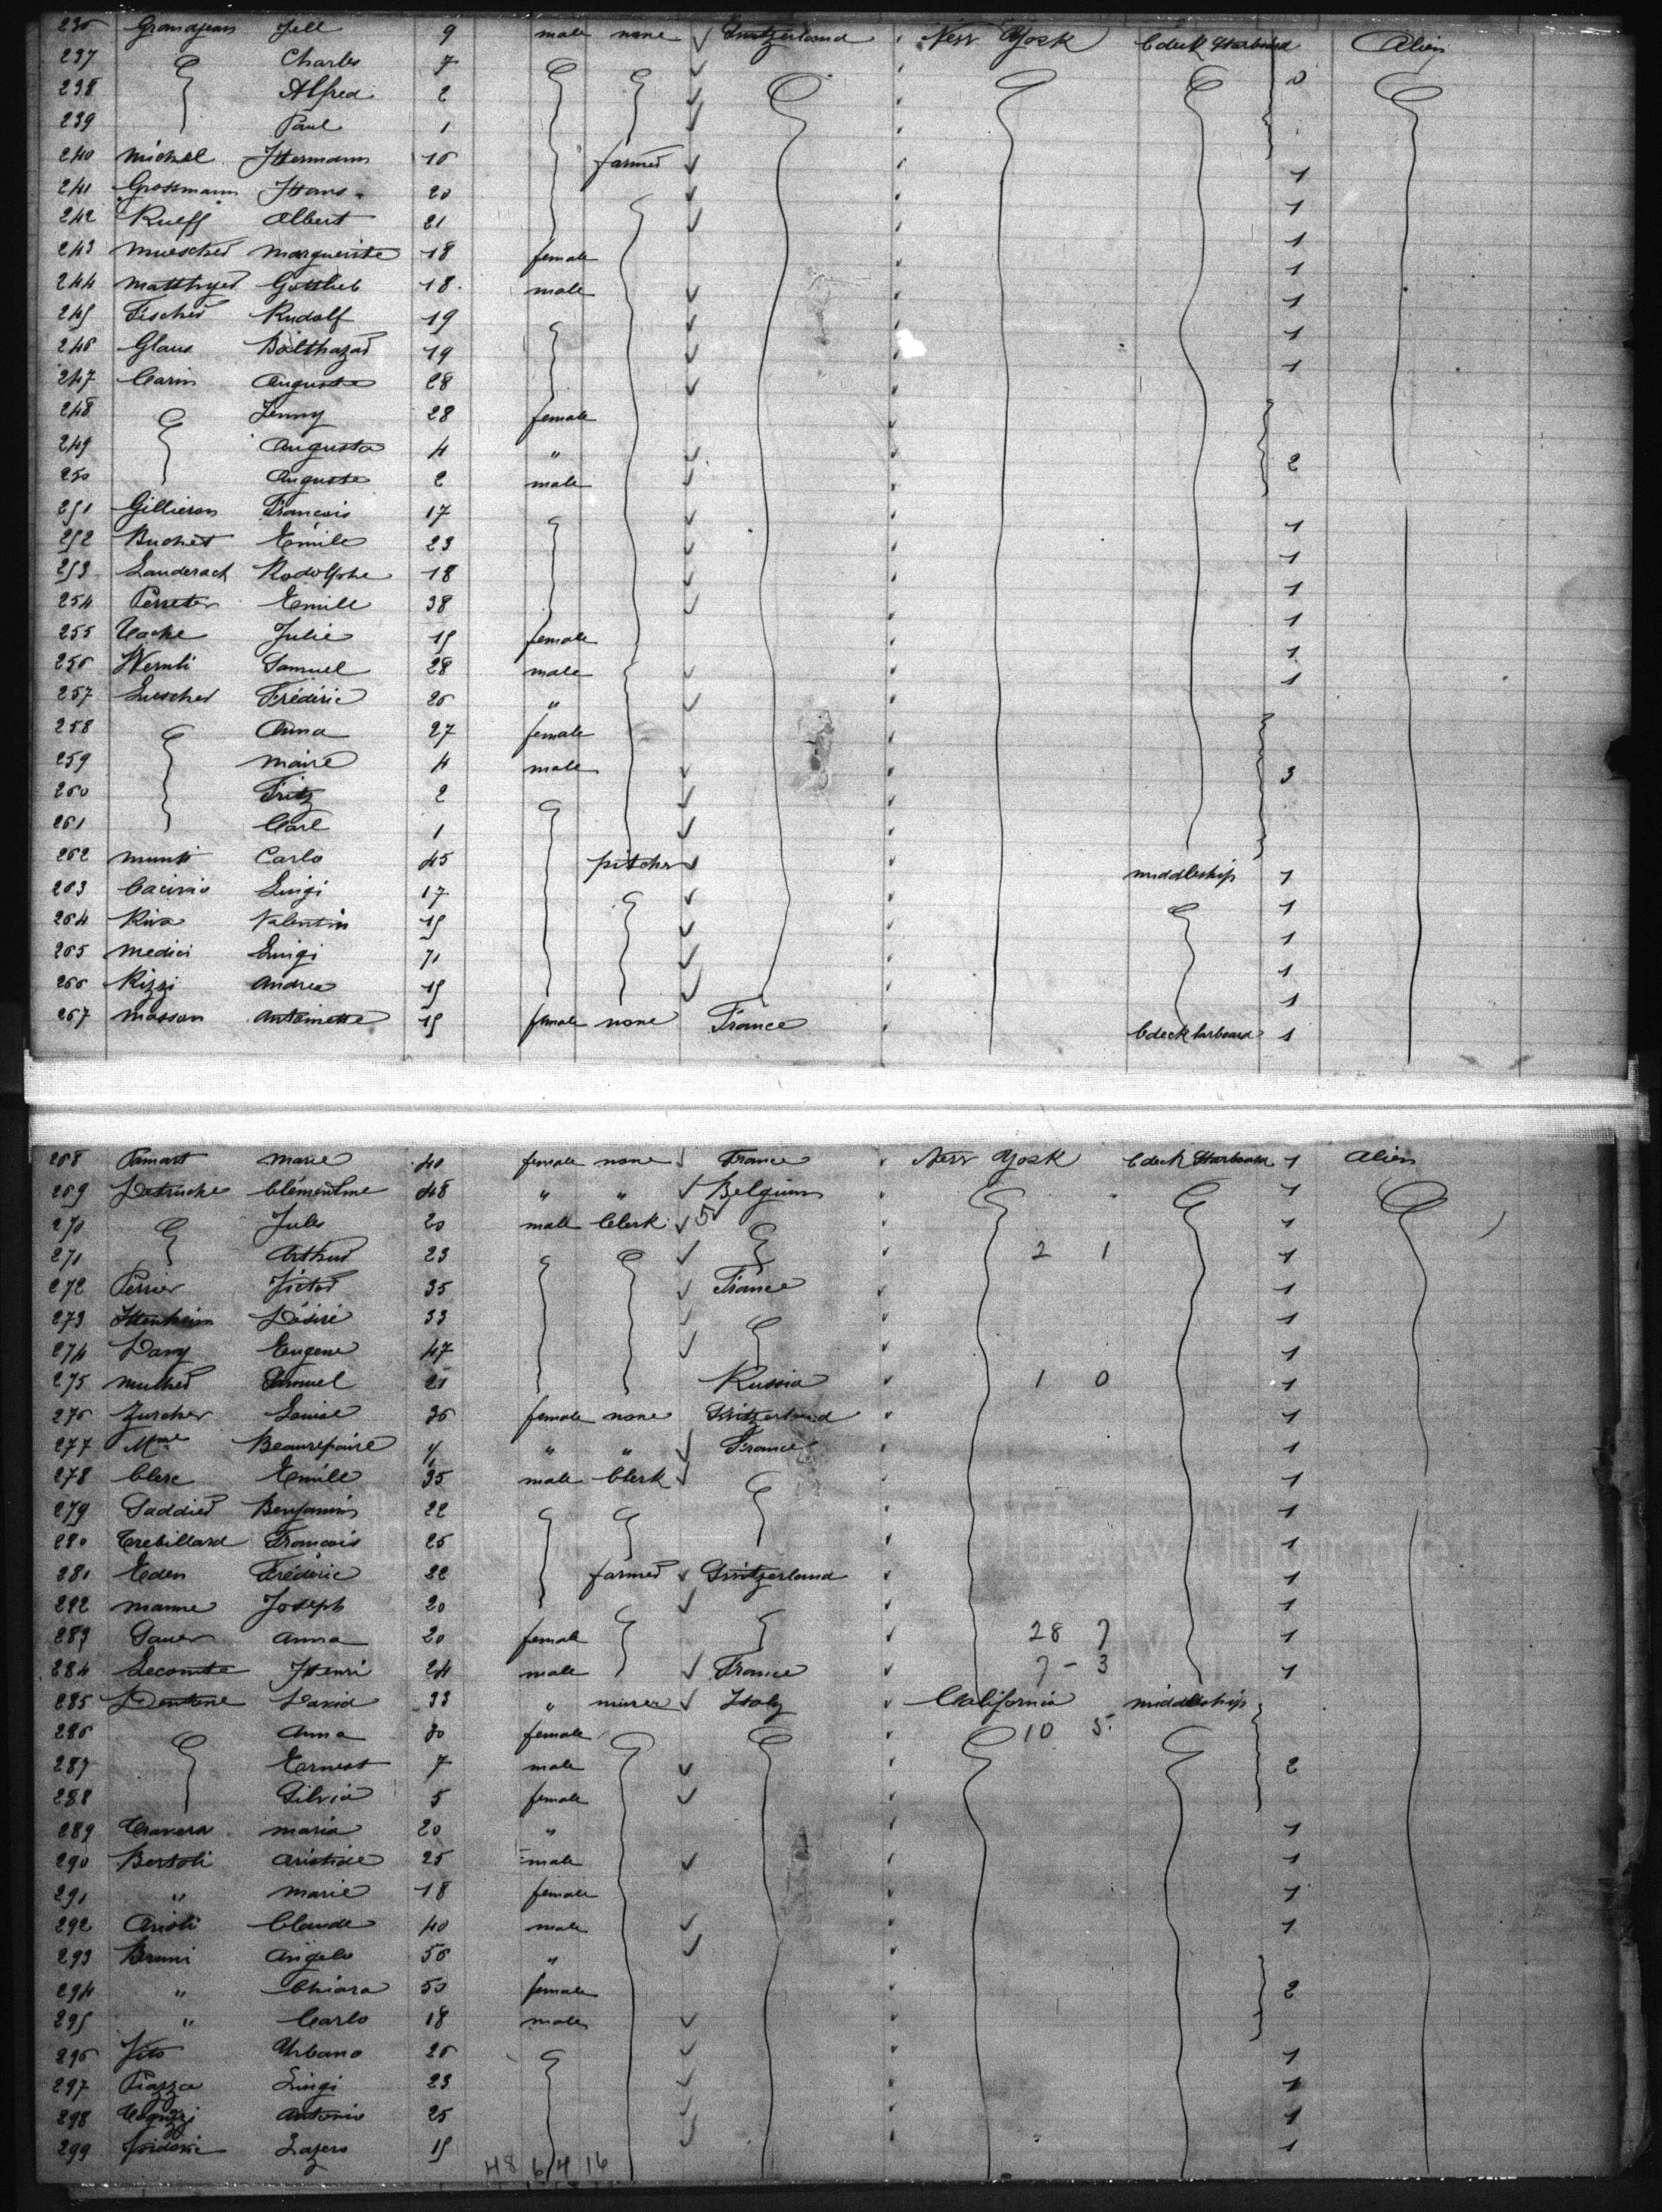 236 Grandjean Jell 9 male none ✓ Switzerland New York C deck Starboard Alien
237 Charles 7 ✓
238 Alfred 2 ✓
239 Paul 1 ✓
240 Michel Hermann 16 farmer ✓ 1
241 Grossmann Hans 20 ✓ 1
242 Rueff Albert 21 ✓ 1
243 Muescher Marguerite 18 female 1
244 Matthyer Gottlieb 18 male ✓ 1
245 Fischer Rudolf 19 ✓ 1
246 Glaus Balthazar 19 ✓ 1
247 Carin Auguste 28 ✓
248 Jenny 28 female
249 Augusta 4 " ✓ 2
250 Auguste 2 male ✓
251 Gillieron Francois 17 ✓ 1
252 Buchet Emile 23 ✓ 1
253 Landerach Rodolphe 18 ✓ 1
254 Perreter Emile 38 ✓ 1
255 Vache Julie 19 female 1
256 Wernli Samuel 28 male ✓ 1
257 Luscher Frédéric 26 " ✓
258 Anna 27 female
259 Marie 4 male ✓ 3
260 Fritz 2 ✓
261 Carl 1 ✓
262 Munti Carlo 45 pitcher ✓ middleship 1
263 Luigi 17 ✓ 1
264 Riva Valentin 19 ✓ 1
265 Medici Luigi 71 ✓ 1
266 Rizzi Andrea 19 ✓ 1
267 Masson Antoinette 19 female none France C deck larboard 1
268 Pamart Marie 40 female none ✓ France New York C deck Starboard 1 Alien
269 Detruche Clémentine 48 " " ✓ Belgium 1
270 Jules 20 male Clerk ✓ 5 1
271 Arthur 23 ✓ 2 1 1
272 Perrier Victor 35 ✓ France 1
273 Ittenheim Désiré 33 ✓ 1
274 Davy Eugene 47 ✓ 1
275 Muller Samuel 21 Russia 1 0 1
276 Zurcher Louise 36 female none Switzerland 1
277 Mme Beaurepaire " " ✓ France 1
278 Clerc Emile 35 male Clerk ✓ 1
279 Saddier Benjamin 22 1
280 Trebillard Francois 25 1
281 Eden Frédéric 22 farmer ✓ Switzerland 1
292 Manne Joseph 20 ✓ 1
283 Sauer Anna 20 female 28 7 1
284 Lecomte Henri 24 male ✓ France 7 - 3 1
285 Dentone David 33 " miner ✓ Italy California middleship
286 Anna 30 female 10 5
287 Earnest 7 male ✓ 2
288 Silvia 5 female ✓
289 Travera Maria 20 " 1
290 Bertoli Aristide 25 male ✓ 1
291 " Marie 18 female 1
292 Arioli Claude 40 male ✓ 1
293 Bruni Angelo 56 " ✓
294 " Chiara 50 female 2
295 " Carlo 18 male ✓
296 Vito Urbano 26 ✓ 1
297 Piazza Luigi 23 ✓ 1
298 Antonio 25 ✓ 1
299 Lazero 19 ✓ 1
48 6/4 16